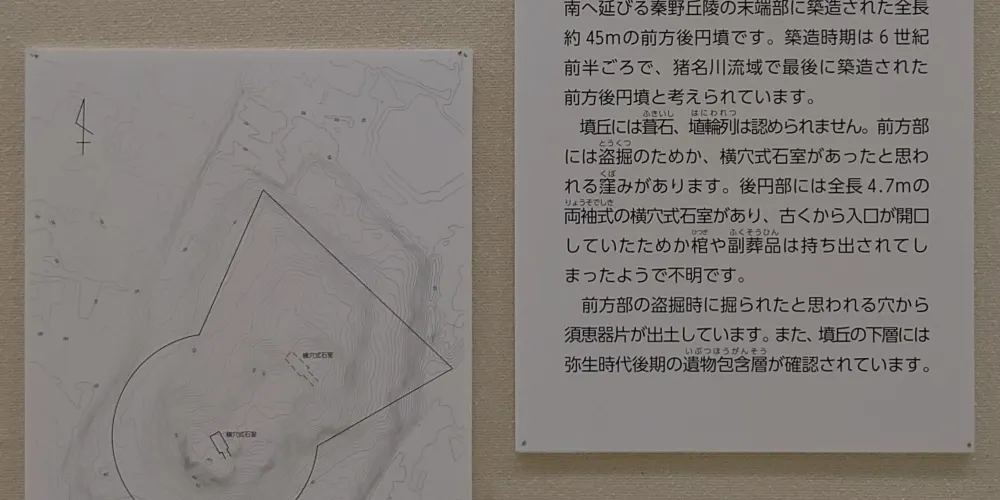 南へ延びる秦野丘陵の末端部に築造された全長
約45mの前方後円墳です。築造時期は6世紀
前半ごろで、猪名川流域で最後に築造された
前方後円墳と考えられています。
ふきいし はにわれつ
墳丘には葺石、埴輪列は認められません。前方部
とうくつ
には盗掘のためか、横穴式石室があったと思わ
くぼ
れる窪みがあります。後円部には全長4.7mの
りょうそでしき
両袖式の横穴式石室があり、古くから入口が開口
ひつぎ ふくそうひん
していたためか棺や副葬品は持ち出されてし
まったようで不明です。
前方部の盗掘時に掘られたと思われる穴から
須恵器片が出土しています。また、墳丘の下層には
いぶつほうがんそう
弥生時代後期の遺物包含層が確認されています。
横穴式石室
横穴式石室